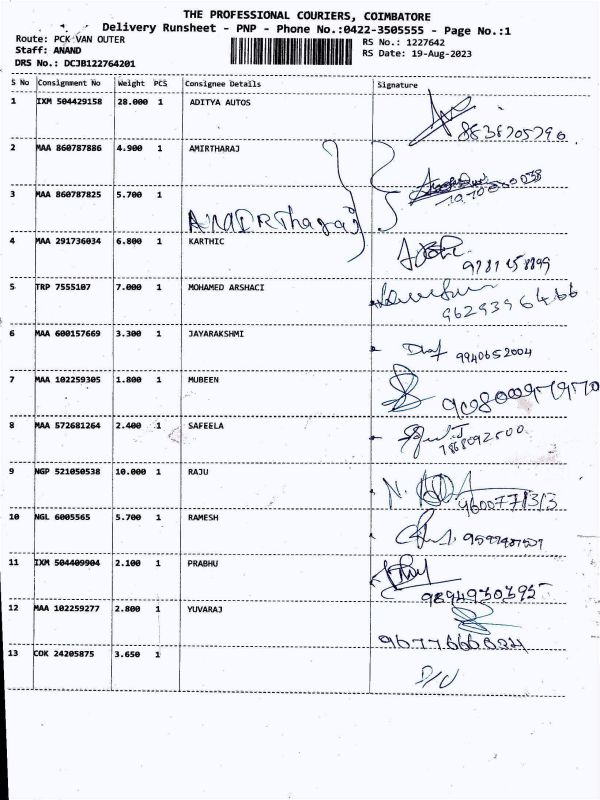 THE PROFESSIONAL COURIERS, COIMBATORE
Delivery Runsheet - PNP - Phone No.:0422-3505555 - Page No.:1
Route: PCK VAN OUTER
Staff: ANAND
DRS No.: DCJB122764201
RS No.: 1227642
RS Date: 19-Aug-2023
S No Consignment No Weight PCS Consignee Details Signature
1 IXM 504429158 28.000 1 ADITYA AUTOS
2 MAA 860787886 4.900 1 AMIRTHARAJ
3 MAA 860787825 5.700 1
4 MAA 291736034 6.800 1 KARTHIC
5 TRP 7555107 7.000 1 MOHAMED ARSHACI
9629396466
6 MAA 600157669 3.300 1 JAYARAKSHMI
9940652004
7 MAA 102259305 1.800 1 MUBEEN
8 MAA 572681264 2.400 1 SAFEELA
9 NGP 521050538 10.000 1 RAJU
9600771313
10 NGL 6005565 5.700 1 RAMESH
11 IXM 504409904 2.100 1 PRABHU
12 MAA 102259277 2.800 1 YUVARAJ
13 COK 24205875 3.650 1